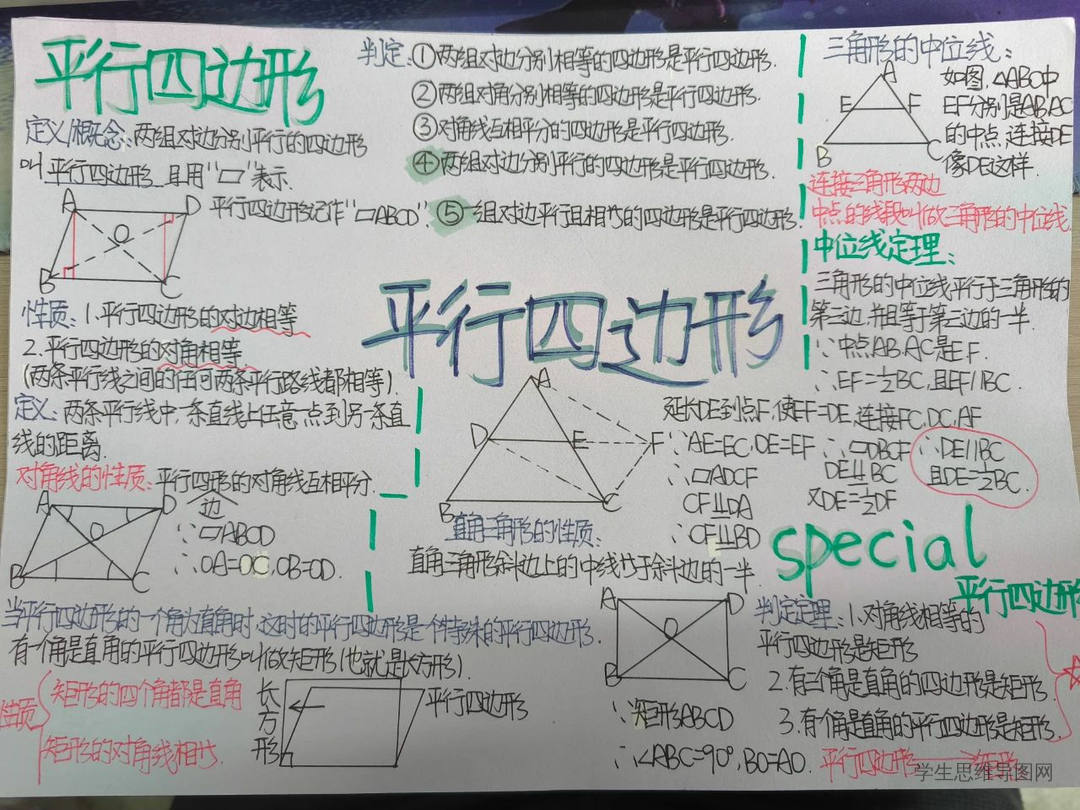 平行四边形
定义/概念:两组对边分别平行的四边形
叫平行四边形 且用"▱"表示.
平行四边形记作"▱ABCD".
A
D
O
B
C
性质:1.平行四边形的对边相等
2.平行四边形的对角相等
(两条平行线之间的任何两条平行路线都相等).
定义:两条平行线中,一条直线上任意一点到另一条直
线的距离.
对角线的性质:平行四形的对角线互相平分.
边
A
D
O
B
C
∵▱ABCD
∴OA=OC.OB=OD.
判定:①两组对边分别相等的四边形是平行四边形.
②两组对角分别相等的四边形是平行四边形.
③对角线互相平分的四边形是平行四边形.
④两组对边分别平行的四边形是平行四边形.
⑤一组对边平行且相等的四边形是平行四边形.
平行四边形
三角形的中位线:
A
E
F
B
C
如图,△ABC中
EF分别是AB,AC
的中点,连接DE
像DE这样.
连接三角形两边
中点的线段叫做三角形的中位线.
中位线定理:
三角形的中位线平行于三角形的
第三边,并且等于第三边的一半.
∵中点AB.AC是EF.
∴EF=½BC,且EF∥BC.
A
D
E
F
B
C
延长DE到点F,使EF=DE,连接FC,DC,AF
∵AE=EC,DE=EF
∴▱ADCF
CF⫫DA
∴CF⫫BD
∴▱DBCF
DF⫫BC
又DE=½DF
∴DE∥BC
且DE=½BC.
直角三角形的性质:
直角三角形斜边上的中线等于斜边的一半.
special
平行四边形
当平行四边形的一个角为直角时,这时的平行四边形是一个特殊的平行四边形.
有一个角是直角的平行四边形叫做矩形(也就是长方形).
性质
矩形的四个角都是直角
矩形的对角线相等.
长方形
平行四边形
A
D
O
B
C
∵矩形ABCD
∴∠ABC=90°,BO=AO.
判定定理:1.对角线相等的
平行四边形是矩形
2.有三个角是直角的四边形是矩形.
3.有个角是直角的平行四边形是矩形.
平行四边形
矩形
学生思维导图网